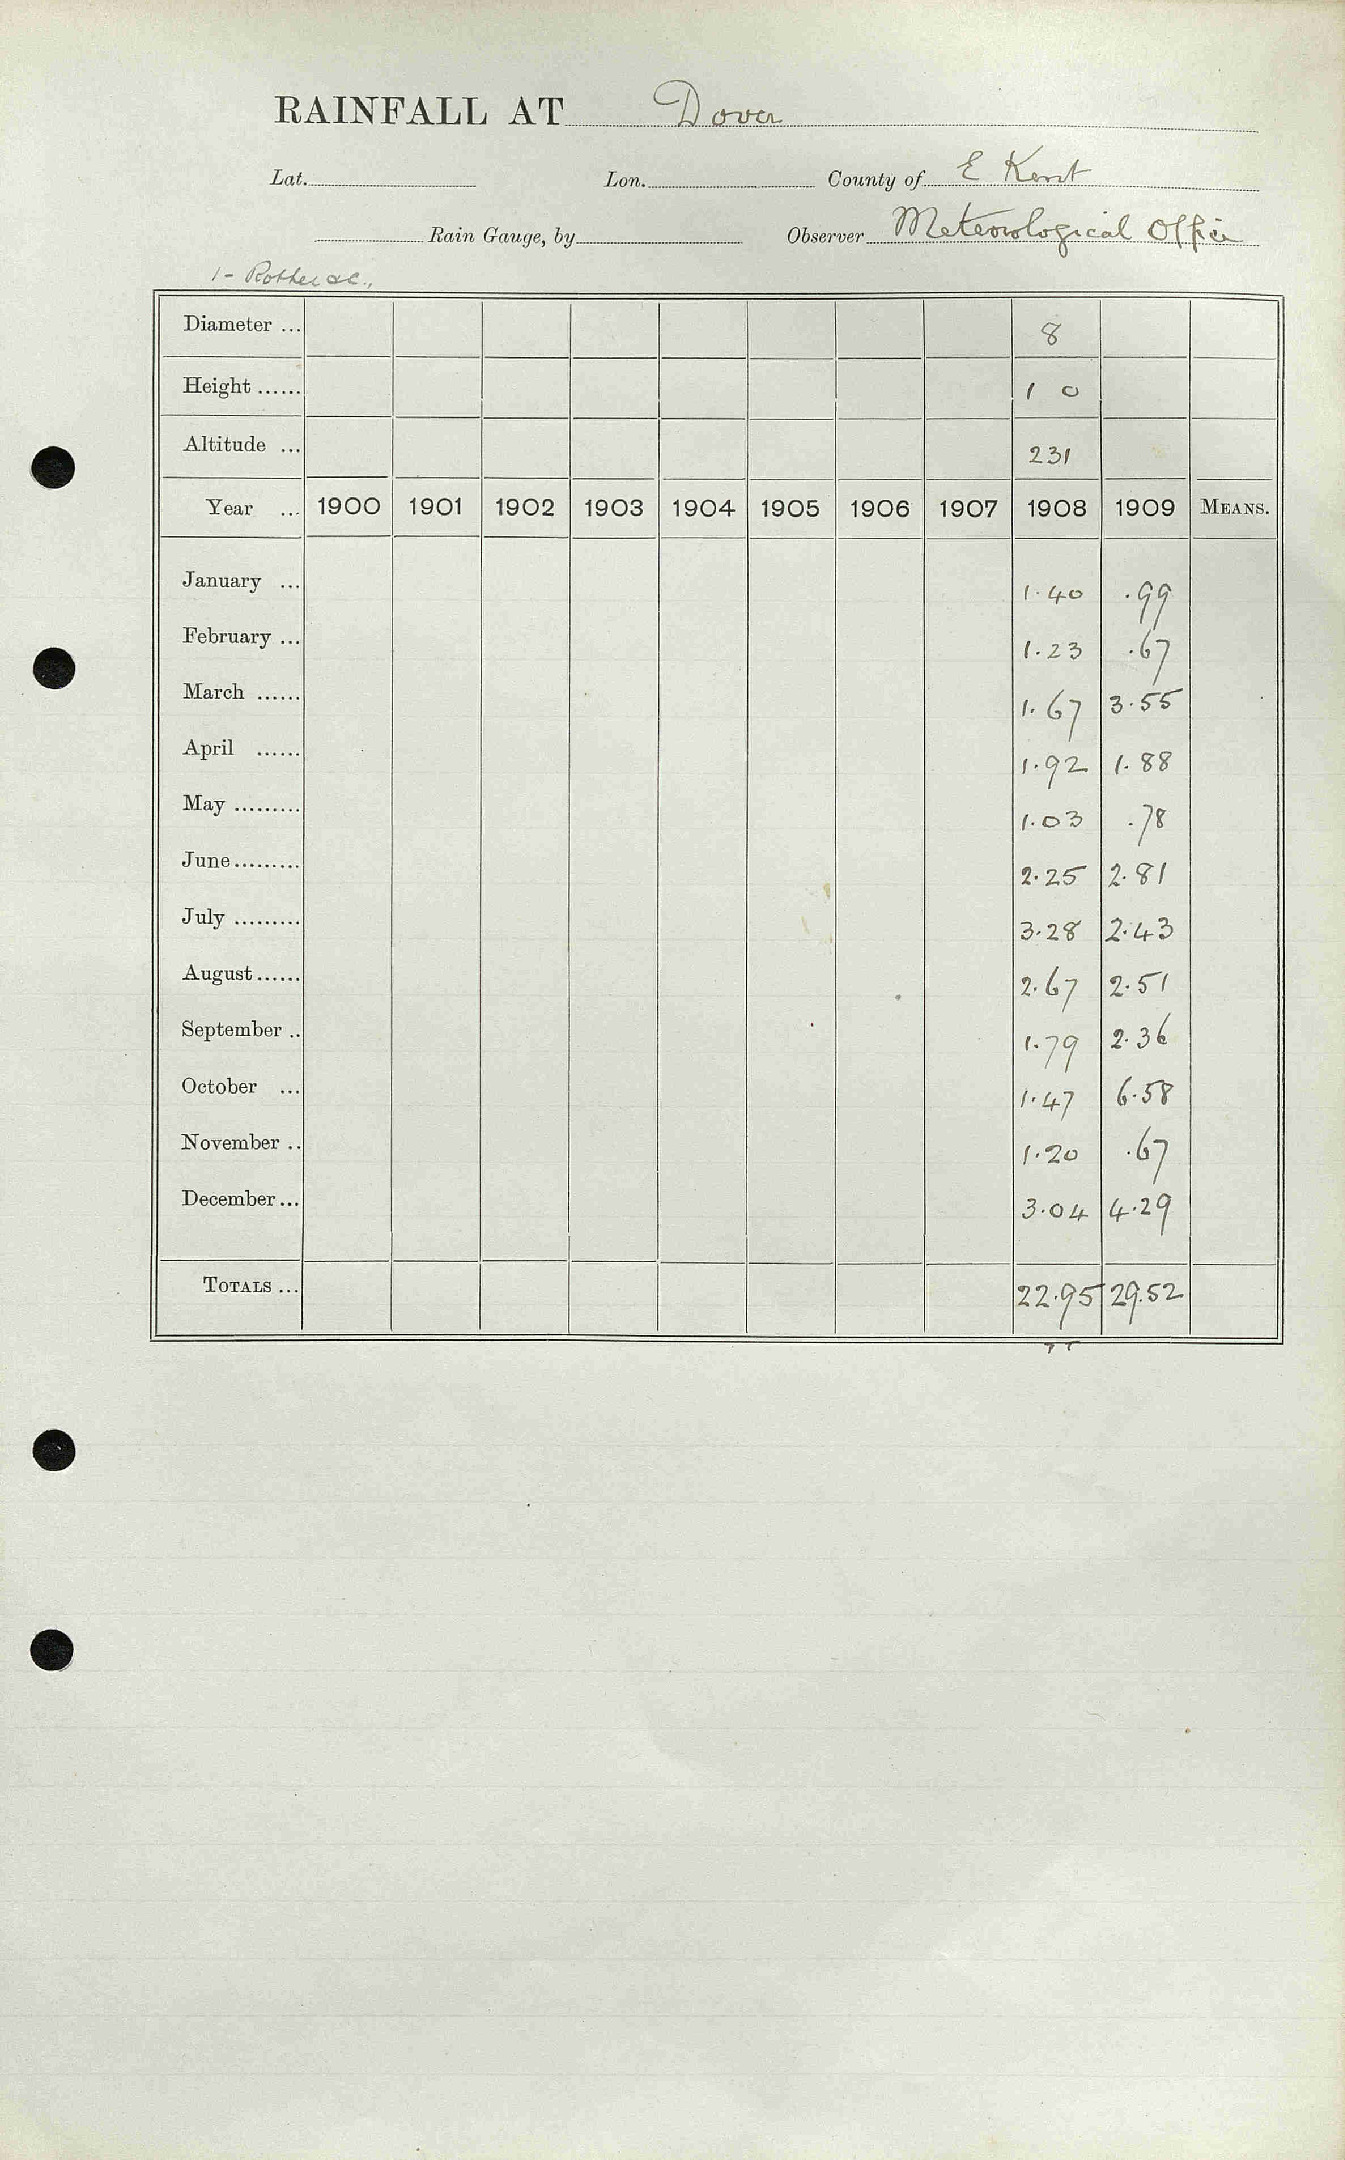 RAINFALL AT Dover
Lat. Lon. County of E Kent
Rain Gauge, by Observer Meteorological Office
1 - Rother &c.,
Diameter ... 8
Height ...... 1 0
Altitude ... 231
Year ... 1900 1901 1902 1903 1904 1905 1906 1907 1908 1909 MEANS.
January ... 1.40 .99
February ... 1.23 .67
March ...... 1.67 3.55
April ...... 1.92 1.88
May ......... 1.03 .78
June ......... 2.25 2.81
July ......... 3.28 2.43
August ...... 2.67 2.51
September .. 1.79 2.36
October ... 1.47 6.58
November .. 1.20 .67
December ... 3.04 4.29
TOTALS ... 22.95 29.52